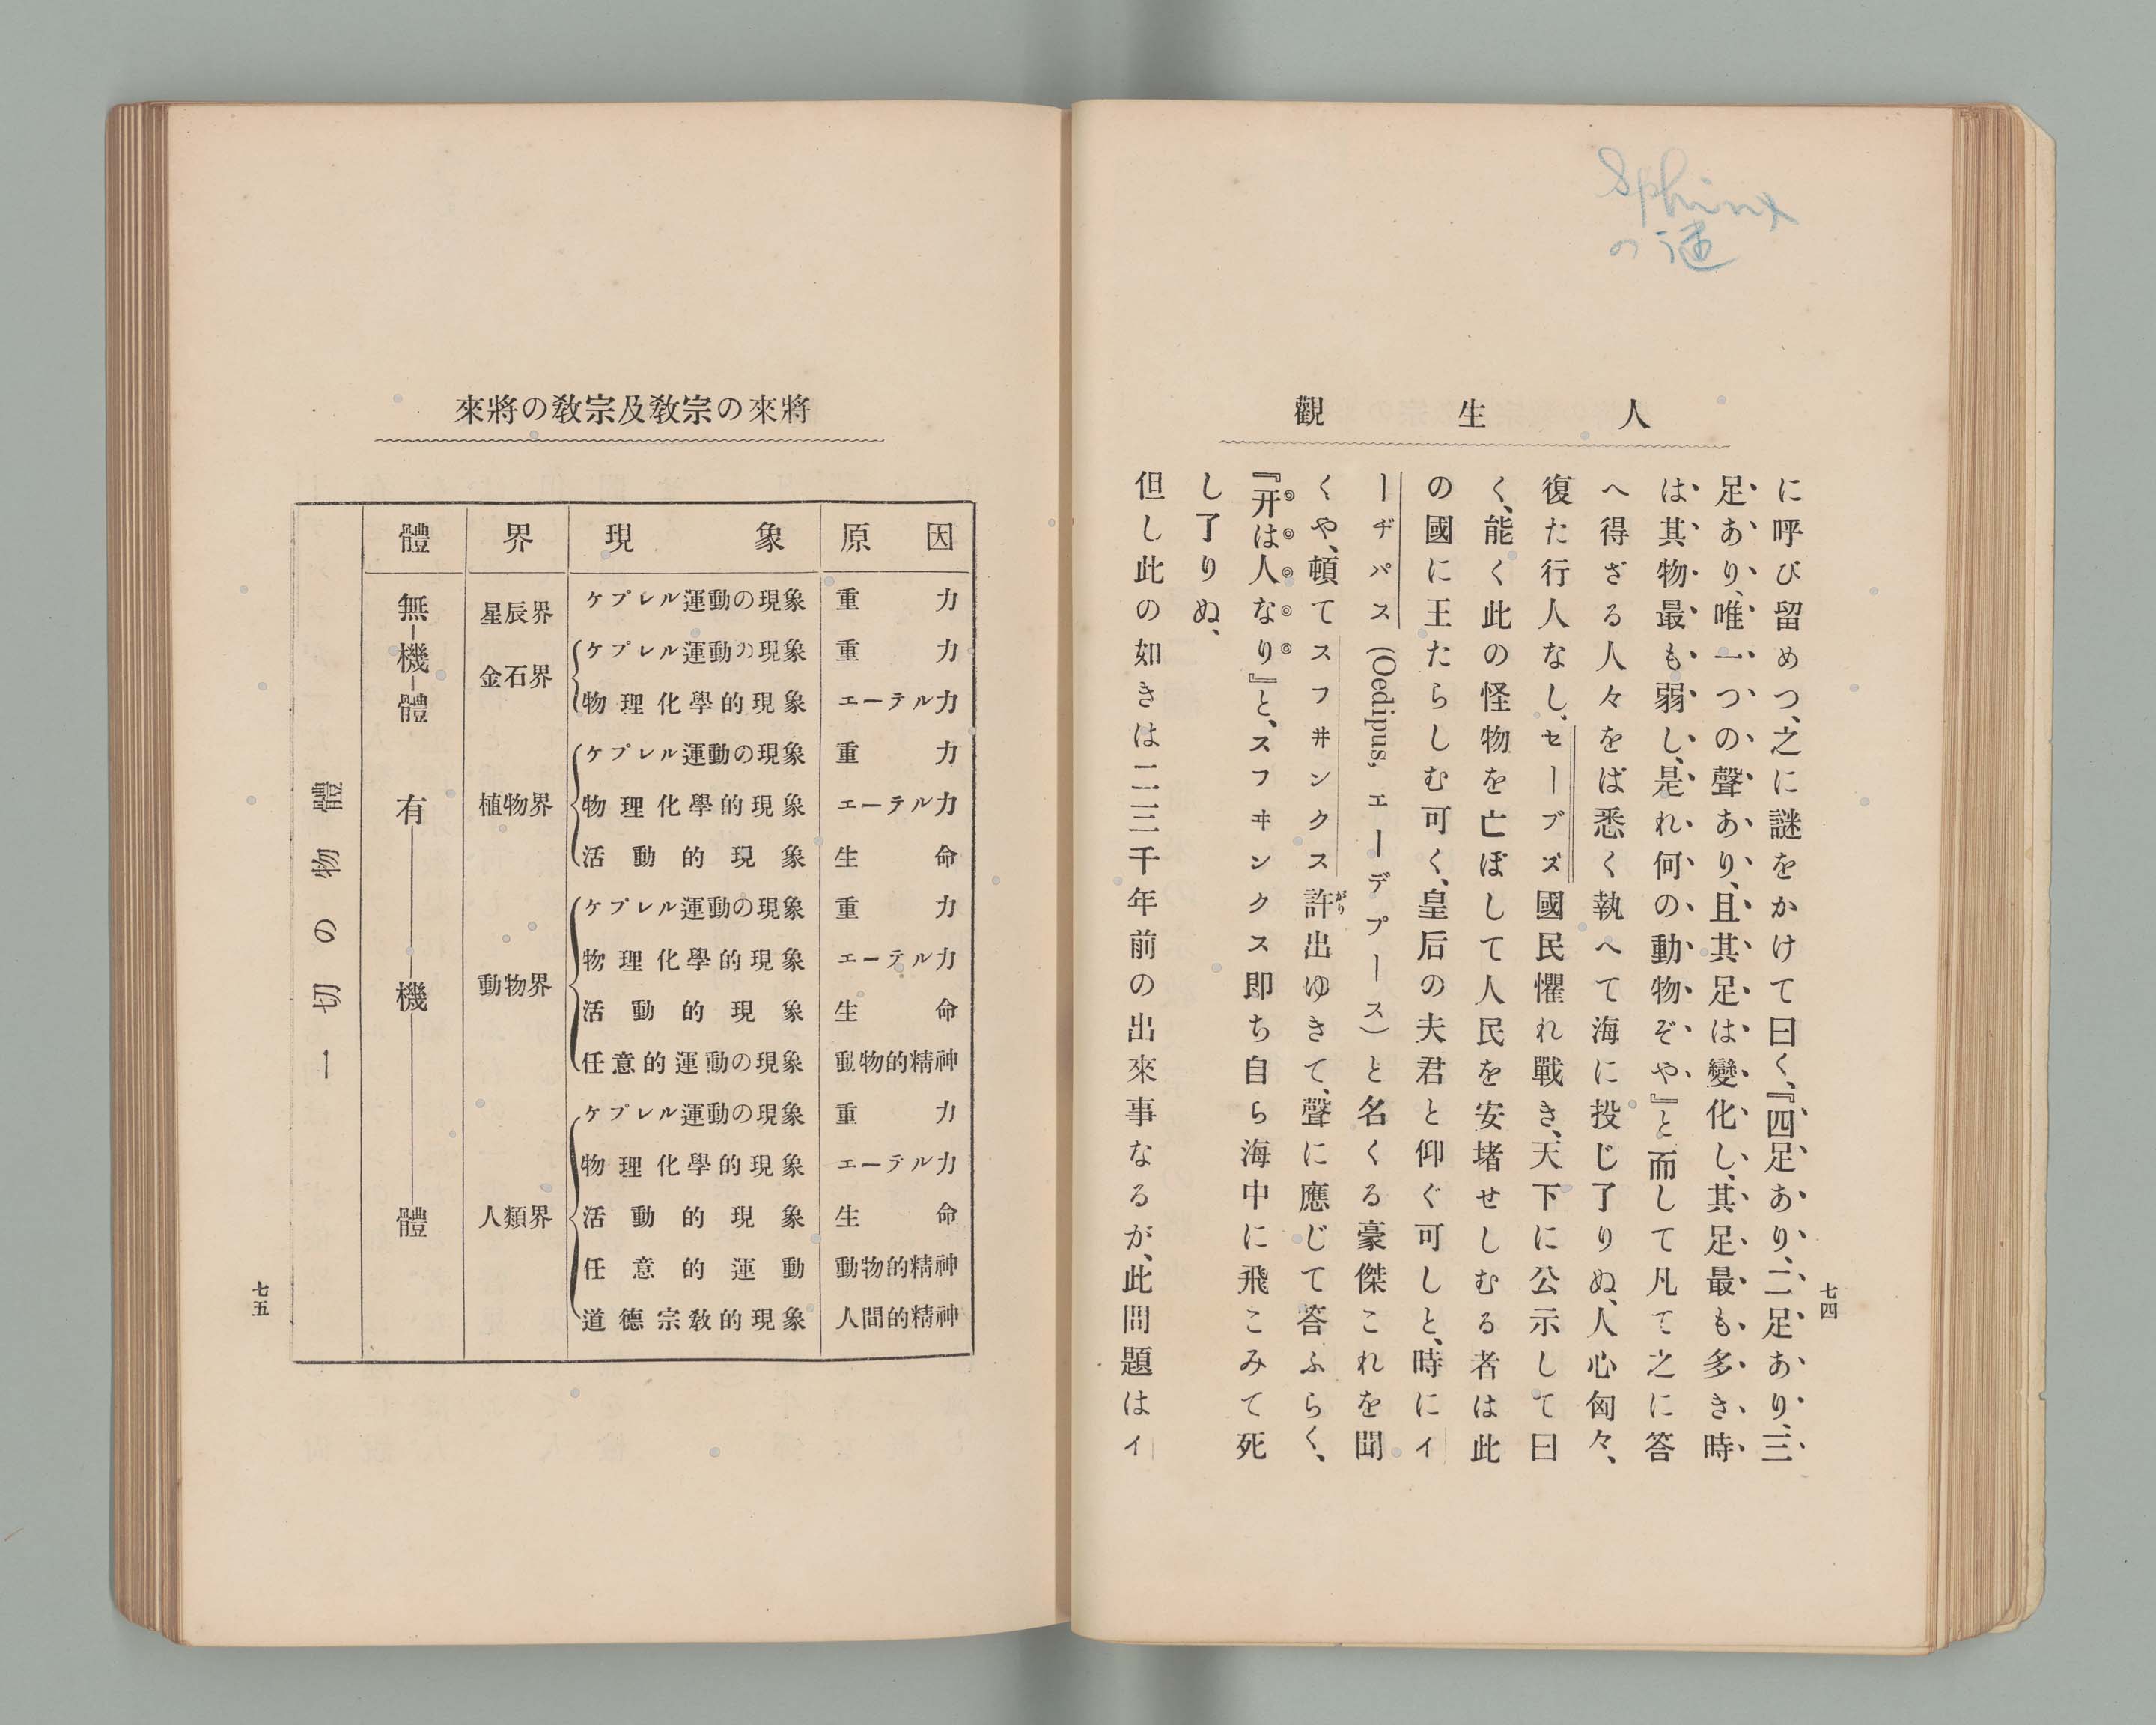 Sphinx
の謎
人生觀
に呼び留めつ、之に謎をかけて曰く、『四足あり、二足あり、三
足あり、唯一つの聲あり、且其足は變化し、其足最も多き時
は其物最も弱し、是れ何の動物ぞや』と而して凡て之に答
へ得ざる人々をば悉く執へて海に投じ了りぬ、人心匈々、
復た行人なし、セーブズ國民懼れ戰き、天下に公示して曰
く、能く此の怪物を亡ぼして人民を安堵せしむる者は此
の國に王たらしむ可く、皇后の夫君と仰ぐ可しと、時にイ
ーヂパス(Oedipus, エーデプース)と名くる豪傑これを聞
くや、頓てスフヰンクス許出ゆきて、聲に應じて答ふらく、
がり
『幵は人なり』と、スフヰンクス即ち自ら海中に飛こみて死
し了りぬ、
但し此の如きは二三千年前の出來事なるが、此問題はイ
七四
將來の宗敎及宗敎の將來
體 界 現象 原因
一切の物體
無機體
星辰界 ケプレル運動の現象 重力
金石界 ケプレル運動の現象 重力
物理化學的現象 エーテル力
有機體
植物界 ケプレル運動の現象 重力
物理化學的現象 エーテル力
活動的現象 生命
動物界 ケプレル運動の現象 重力
物理化學的現象 エーテル力
活動的現象 生命
任意的運動の現象 動物的精神
人類界 ケプレル運動の現象 重力
物理化學的現象 エーテル力
活動的現象 生命
任意的運動 動物的精神
道德宗敎的現象 人間的精神
七五